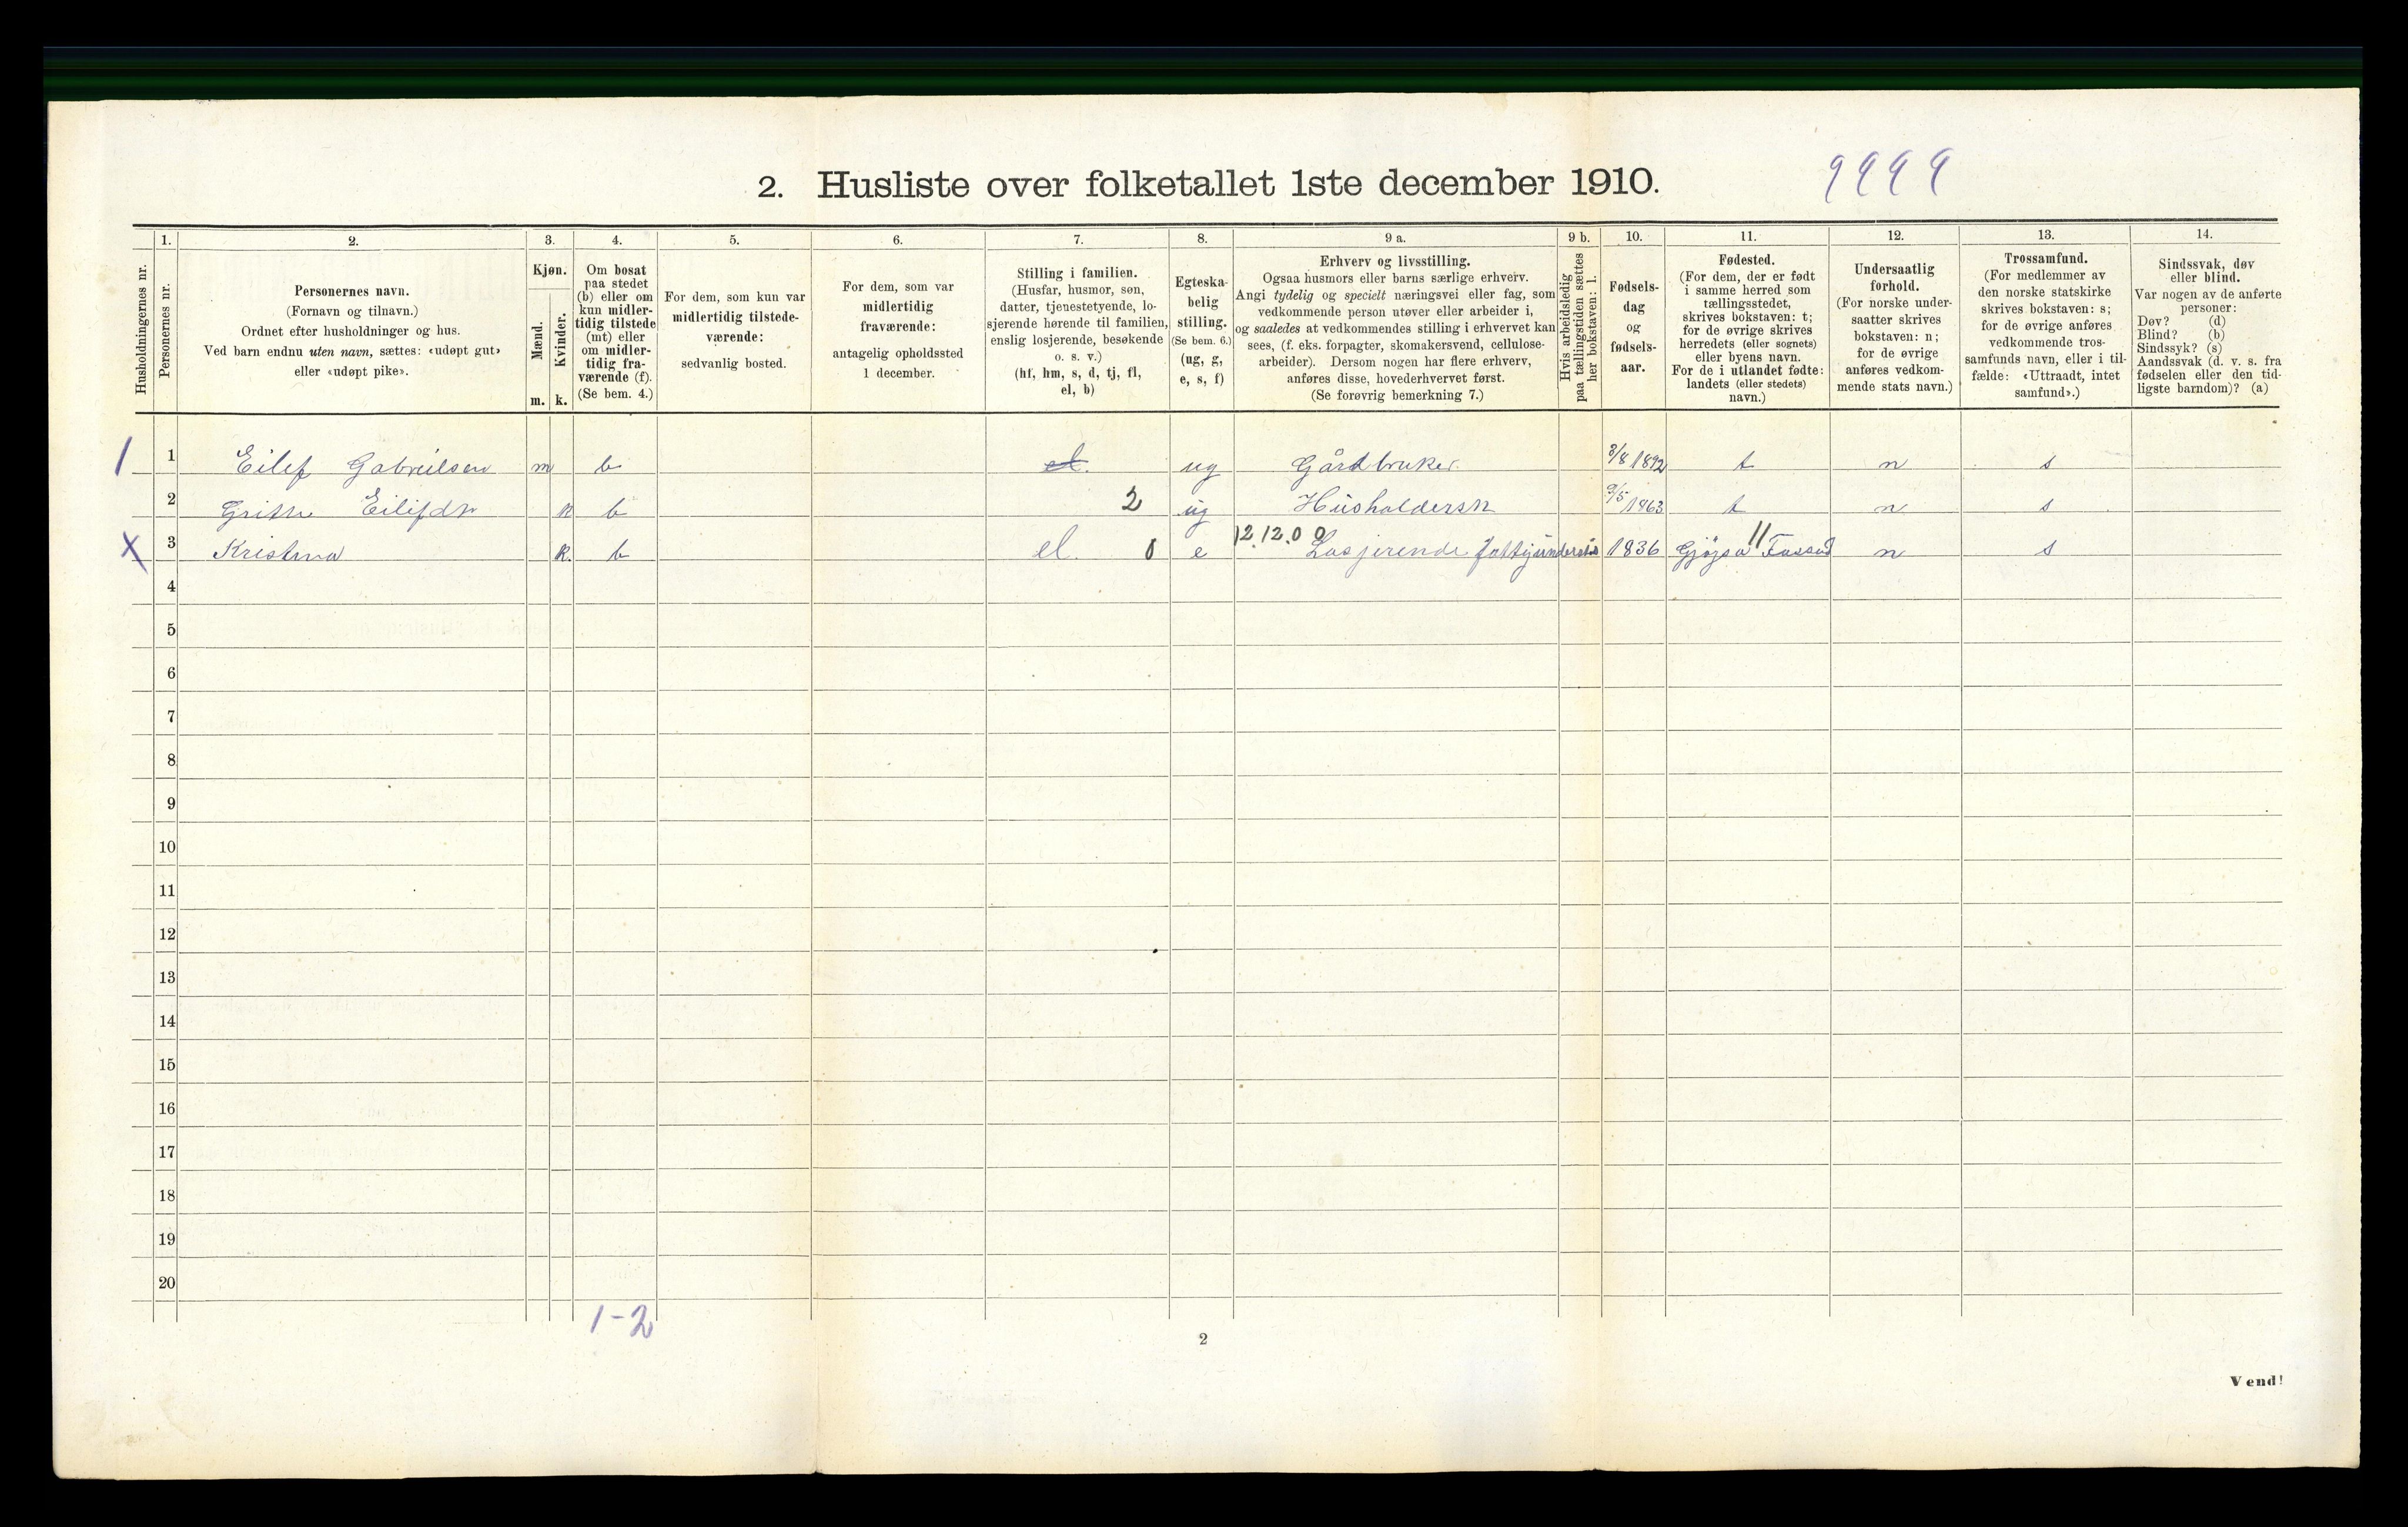 2. Husliste over folketallet 1ste december 1910.
9999
Husholdningernes nr.
1.
Personernes nr.
2.
Personernes navn.
(Fornavn og tilnavn.)
Ordnet efter husholdninger og hus.
Ved barn endnu uten navn, sættes: «udøpt gut»
eller «udøpt pike».
3.
Kjøn.
Mænd.
Kvinder.
m. k.
4.
Om bosat
paa stedet
(b) eller om
kun midler-
tidig tilstede
(mt) eller
om midler-
tidig fra-
værende (f).
(Se bem. 4.)
5.
For dem, som kun var
midlertidig tilstede-
værende:
sedvanlig bosted.
6.
For dem, som var
midlertidig
fraværende:
antagelig opholdssted
1 december.
7.
Stilling i familien.
(Husfar, husmor, søn,
datter, tjenestetyende, lo-
sjerende hørende til familien,
enslig losjerende, besøkende
o. s. v.)
(hf, hm, s, d, tj, fl,
el, b)
8.
Egteska-
belig
stilling.
(Se bem. 6.)
(ug, g,
e, s, f)
9 a.
Erhverv og livsstilling.
Ogsaa husmors eller barns særlige erhverv.
Angi tydelig og specielt næringsvei eller fag, som
vedkommende person utøver eller arbeider i,
og saaledes at vedkommendes stilling i erhvervet kan
sees, (f. eks. forpagter, skomakersvend, cellulose-
arbeider). Dersom nogen har flere erhverv,
anføres disse, hovederhvervet først.
(Se forøvrig bemerkning 7.)
9 b.
Hvis arbeidsledig
paa tællingstiden sættes
her bokstaven: l.
10.
Fødsels-
dag
og
fødsels-
aar.
11.
Fødested.
(For dem, der er født
i samme herred som
tællingsstedet,
skrives bokstaven: t;
for de øvrige skrives
herredets (eller sognets)
eller byens navn.
For de i utlandet fødte:
landets (eller stedets)
navn.)
12.
Undersaatlig
forhold.
(For norske under-
saatter skrives
bokstaven: n;
for de øvrige
anføres vedkom-
mende stats navn.)
13.
Trossamfund.
(For medlemmer av
den norske statskirke
skrives bokstaven: s;
for de øvrige anføres
vedkommende tros-
samfunds navn, eller i til-
fælde: «Uttraadt, intet
samfund».)
14.
Sindssvak, døv
eller blind.
Var nogen av de anførte
personer:
Døv? (d)
Blind? (b)
Sindssyk? (s)
Aandssvak (d. v. s. fra
fødselen eller den tid-
ligste barndom)? (a)
1 1 Eilef Gabrielsen m b el. ug Gårdbruker 3/8 1892 t n s
2 Grithe Eilifdtr k b 2 ug Husholdersk 9/5 1863 t n s
12.12.0 0 11
X 3 Kristina k. b el. 0 e Losjerende 1836 n s
4
5
6
7
8
9
10
11
12
13
14
15
16
17
18
19
20
1-2
2
Vend!